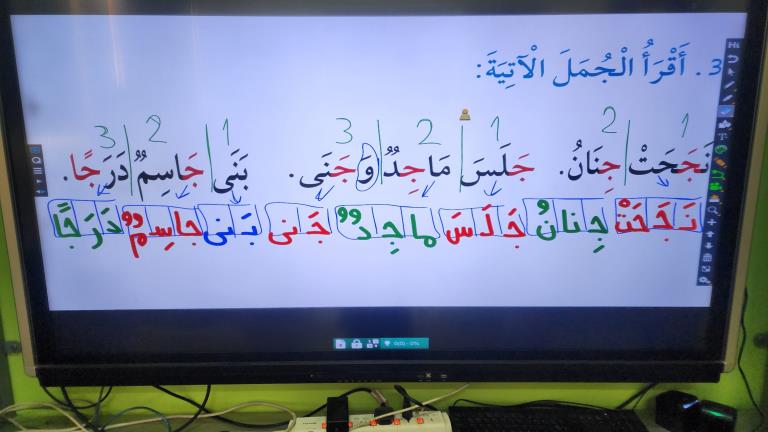 3. أَقْرَأُ الْجُمَلَ الْآتِيَةَ:
1 2 1 2 3 1 2 3
نَجَحَتْ جِنَانُ. جَلَسَ مَاجِدٌ وَ جَنَى. بَنَى جَاسِمٌ دَرَجًا.
نَجَحَتْ جِنانُ جَلَسَ ماجِدٌ جَنى بَنى جاسِمٌ دَرَجًا
0(0) - 0%